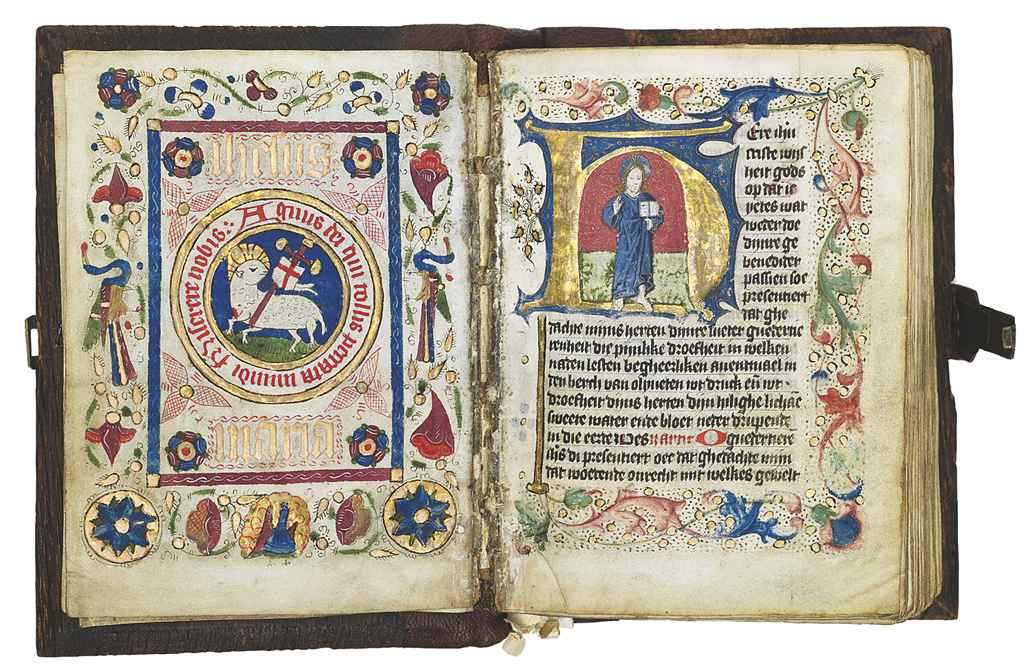 ihesus
Agnus dei qui tollis peccata mundi miserere nobis:
maria
Ere ihu
criste wijs
heit gods
op dat ic
yetes wat
weder doe
dinre ge
benedider
passien soe
presentiert
dat ghe
dachte mijns herten dinre sueter
die pijnlike droefheit in welken
naten lesten begheerliken auentmael in
den berch van olijueten wt druck en wt
droefheit dijns herten dijn hilighe lichae
sweete water ende bloet neder drupende
in die eerde Des
di presentiert oec dat ghedachte mijn
dat woetende onrecht mit welkes gewelt